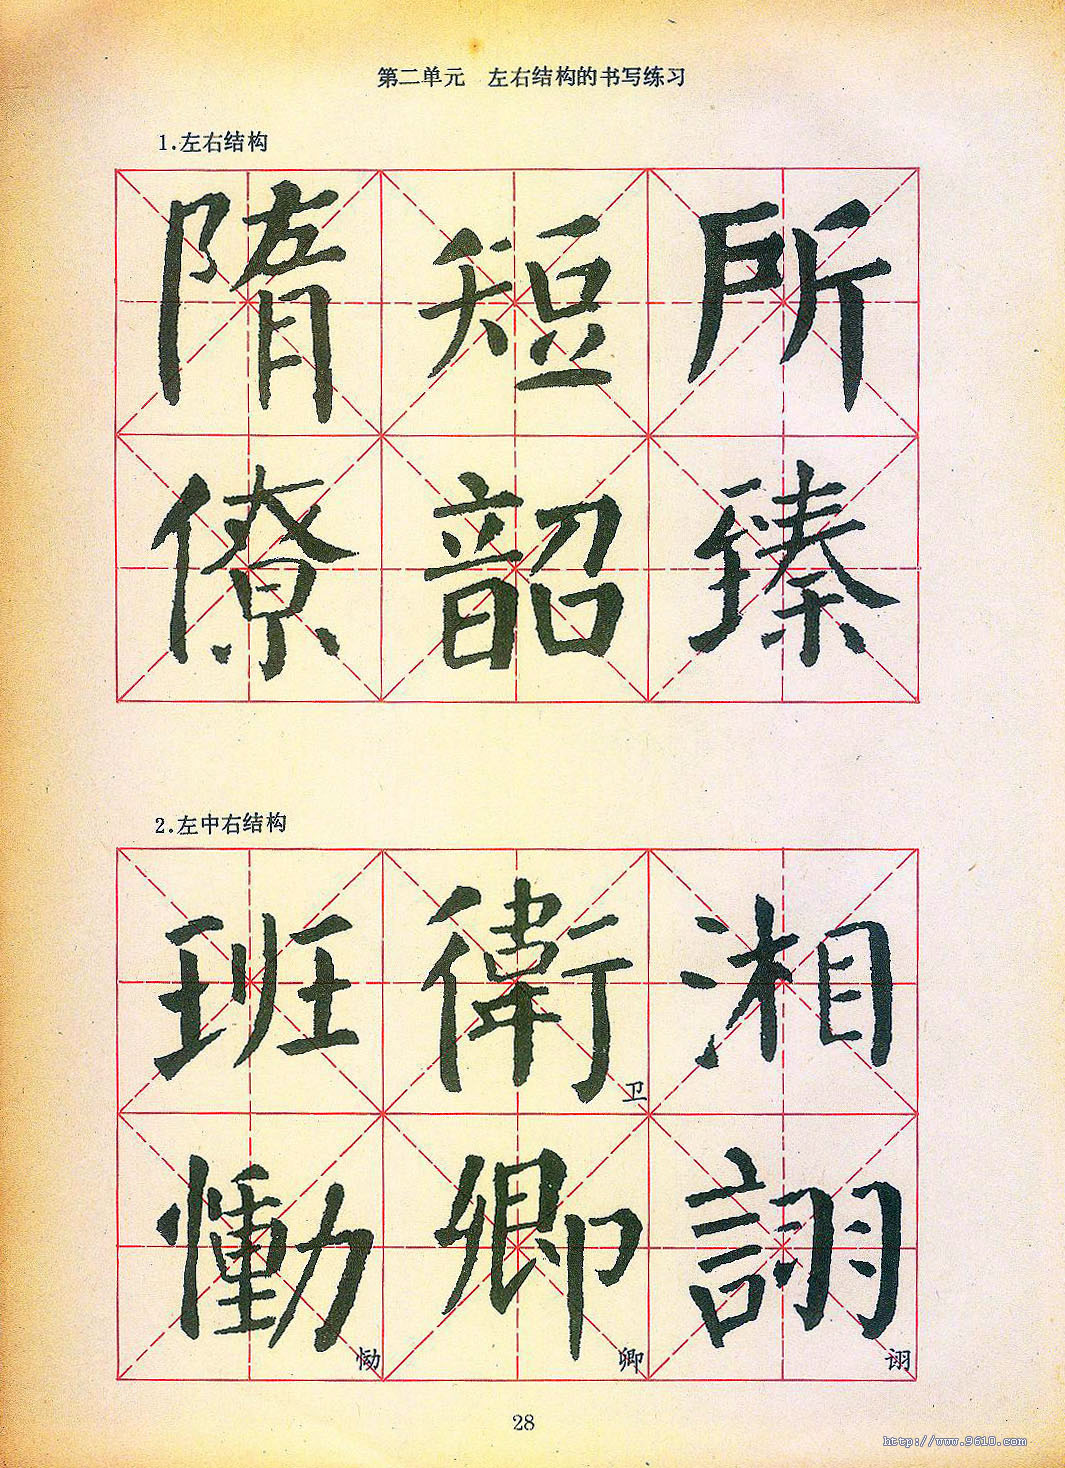 第二单元 左右结构的书写练习
1.左右结构
隋 短 所
僚 韶 臻
2.左中右结构
班 衛 湘
卫
慟 卿 詡
恸 卿 诩
28
http://www.9610.com